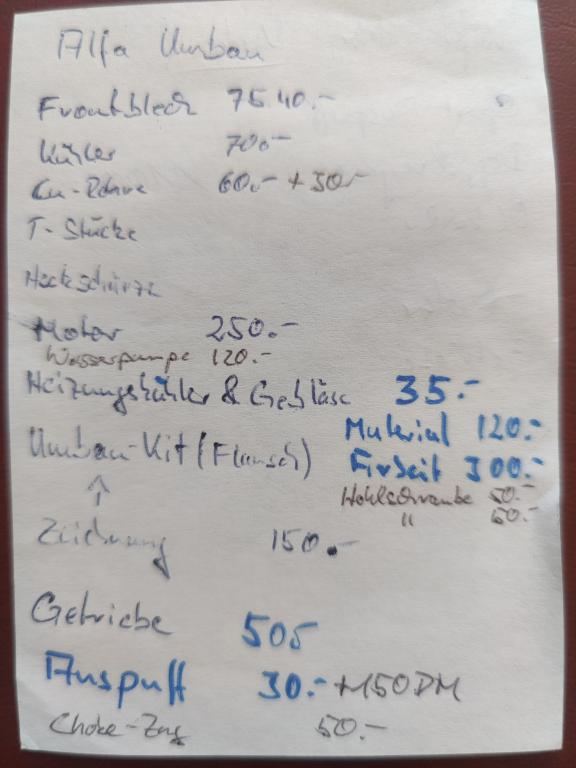 Alfa Umbau
Frontblech 75.40.-
Kühler 700.-
Cu-Rohre 60.- + 30.-
T-Stücke
Heckschürze
Motor 250.-
Wasserpumpe 120.-
Heizungskühler & Gebläse 35.-
Umbau-Kit (Flansch) Material 120.-
↑ Arbeit 300.-
Hohlschraube 50.-
" 60.-
Zeichnung 150.-
Getriebe 505
Auspuff 30.- + 150 DM
Choke-Zug 50.-